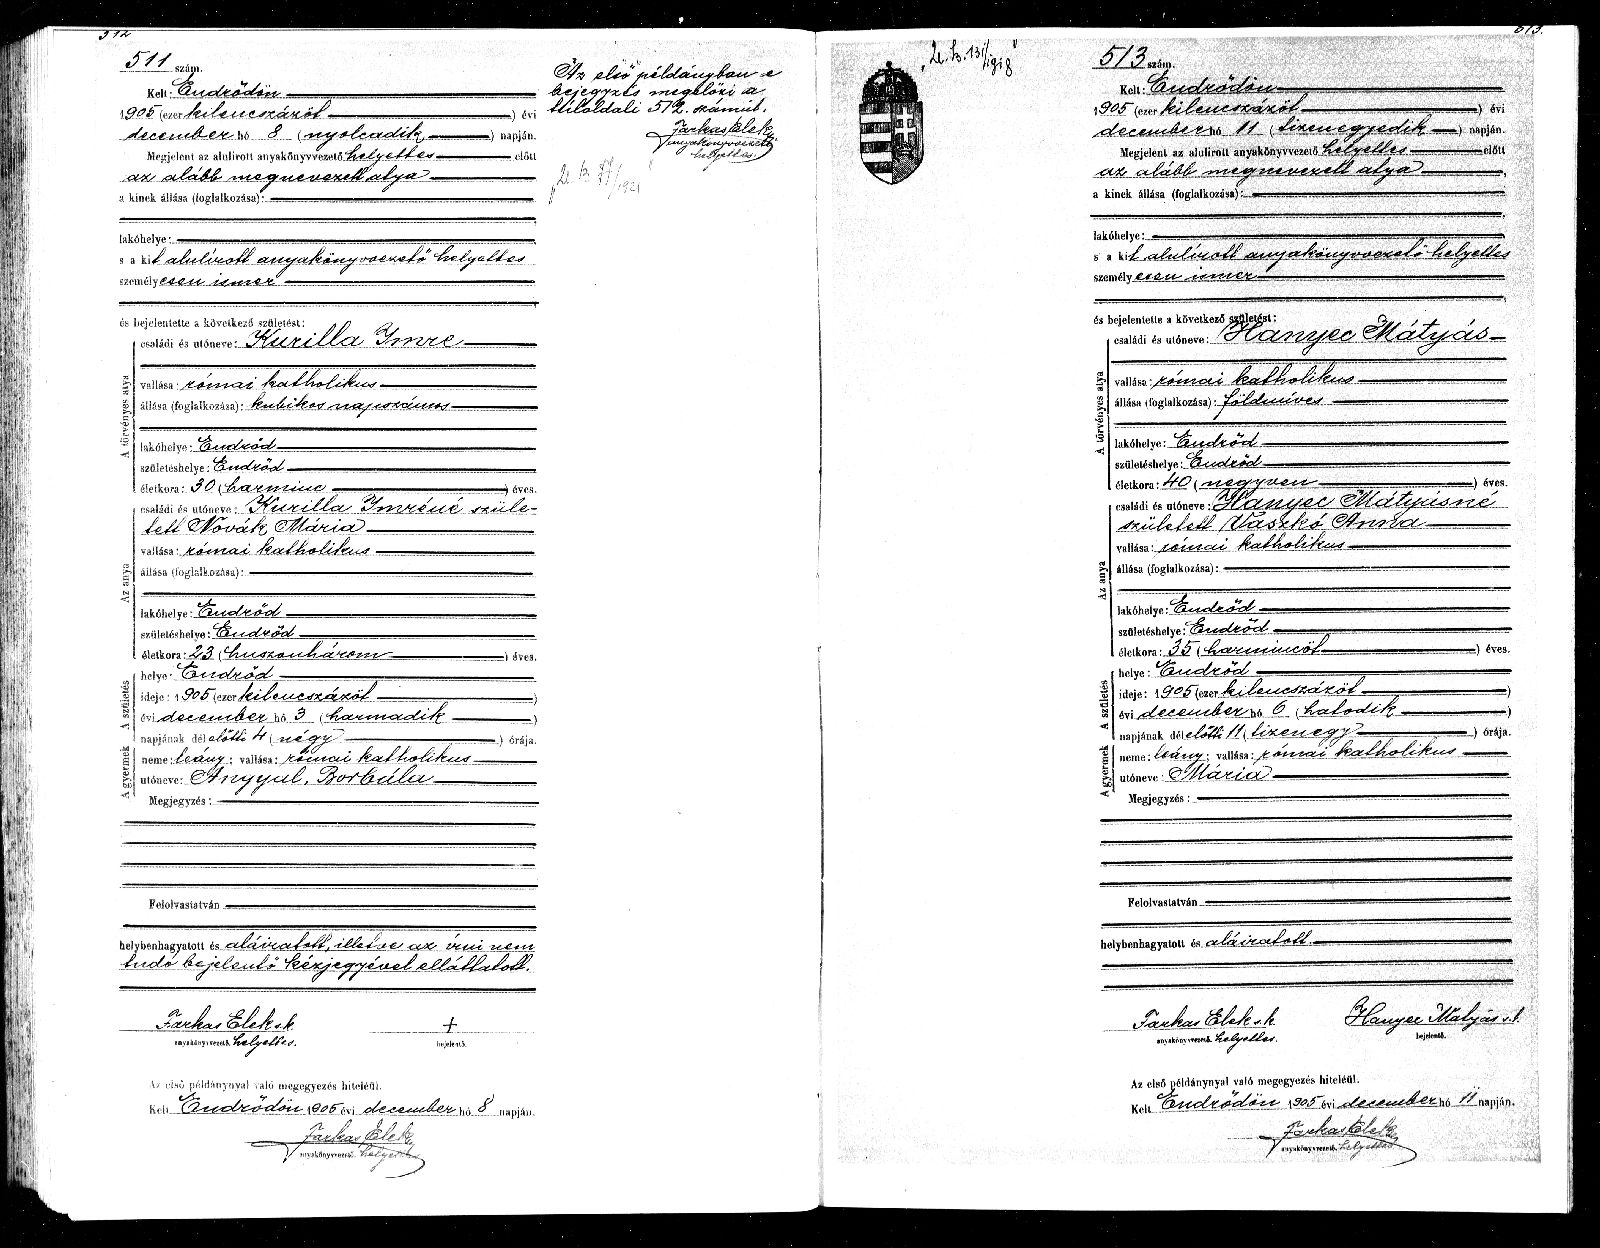 512
511 szám.
Kelt: Endrődön
1905 (ezer kilencszázöt ) évi
december hó 8 (nyolcadik ) napján.
Megjelent az alulirott anyakönyvvezető helyettes előtt
az alább megnevezett atya
a kinek állása (foglalkozása):
lakóhelye:
s a kit alulírott anyakönyvvezető helyettes
személyesen ismer
és bejelentette a következő születést:
A törvényes atya
családi és utóneve: Kurilla Imre
vallása: római katholikus
állása (foglalkozása): kubikos napszámos
lakóhelye: Endrőd
születéshelye: Endrőd
életkora: 30 (harminc ) éves.
Az anya
családi és utóneve: Kurilla Imréné szüle-
tett Novák Mária
vallása: római katholikus
állása (foglalkozása):
lakóhelye: Endrőd
születéshelye: Endrőd
életkora: 23 (huszonhárom ) éves.
A születés
helye: Endrőd
ideje: 1905 (ezer kilencszázöt )
évi december hó 3 (harmadik )
napjának délelőtti 4 (négy ) órája.
A gyermek
neme: leány; vallása: római katholikus
utóneve: Angyal, Borbála
Megjegyzés:
Felolvastatván
helybenhagyatott és aláiratott, illetve az írni nem
tudó bejelentő kézjegyével elláttatott.
Farkas Elek s.k. +
anyakönyvvezető. helyettes. bejelentő.
Az első példánynyal való megegyezés hiteléül.
Kelt Endrődön 1905 évi december hó 8 napján.
Farkas Elek
anyakönyvvezető. helyettes
Az első példányban e
bejegyzés megelőzi a
túloldali 512. számút.
Farkas Elek
anyakönyvvezető
helyettes.
513.
513 szám.
Kelt: Endrődön
1905 (ezer kilencszázöt ) évi
december hó 11 (tizenegyedik ) napján.
Megjelent az alulirott anyakönyvvezető helyettes előtt
az alább megnevezett atya
a kinek állása (foglalkozása):
lakóhelye:
s a kit alulírott anyakönyvvezető helyettes
személyesen ismer
és bejelentette a következő születést:
A törvényes atya
családi és utóneve: Hanyec Mátyás
vallása: római katholikus
állása (foglalkozása): földmíves
lakóhelye: Endrőd
születéshelye: Endrőd
életkora: 40 (negyven ) éves.
Az anya
családi és utóneve: Hanyec Mátyásné
született Vaszkó Anna
vallása: római katholikus
állása (foglalkozása):
lakóhelye: Endrőd
születéshelye: Endrőd
életkora: 35 (harmincöt ) éves.
A születés
helye: Endrőd
ideje: 1905 (ezer kilencszázöt )
évi december hó 6 (hatodik )
napjának délelőtti 11 (tizenegy ) órája.
A gyermek
neme: leány; vallása: római katholikus
utóneve: Mária
Megjegyzés:
Felolvastatván
helybenhagyatott és aláiratott.
Farkas Elek s.k. Hanyec Mátyás s.k.
anyakönyvvezető. helyettes. bejelentő.
Az első példánynyal való megegyezés hiteléül.
Kelt Endrődön 1905 évi december hó 11 napján.
Farkas Elek
anyakönyvvezető. helyettes